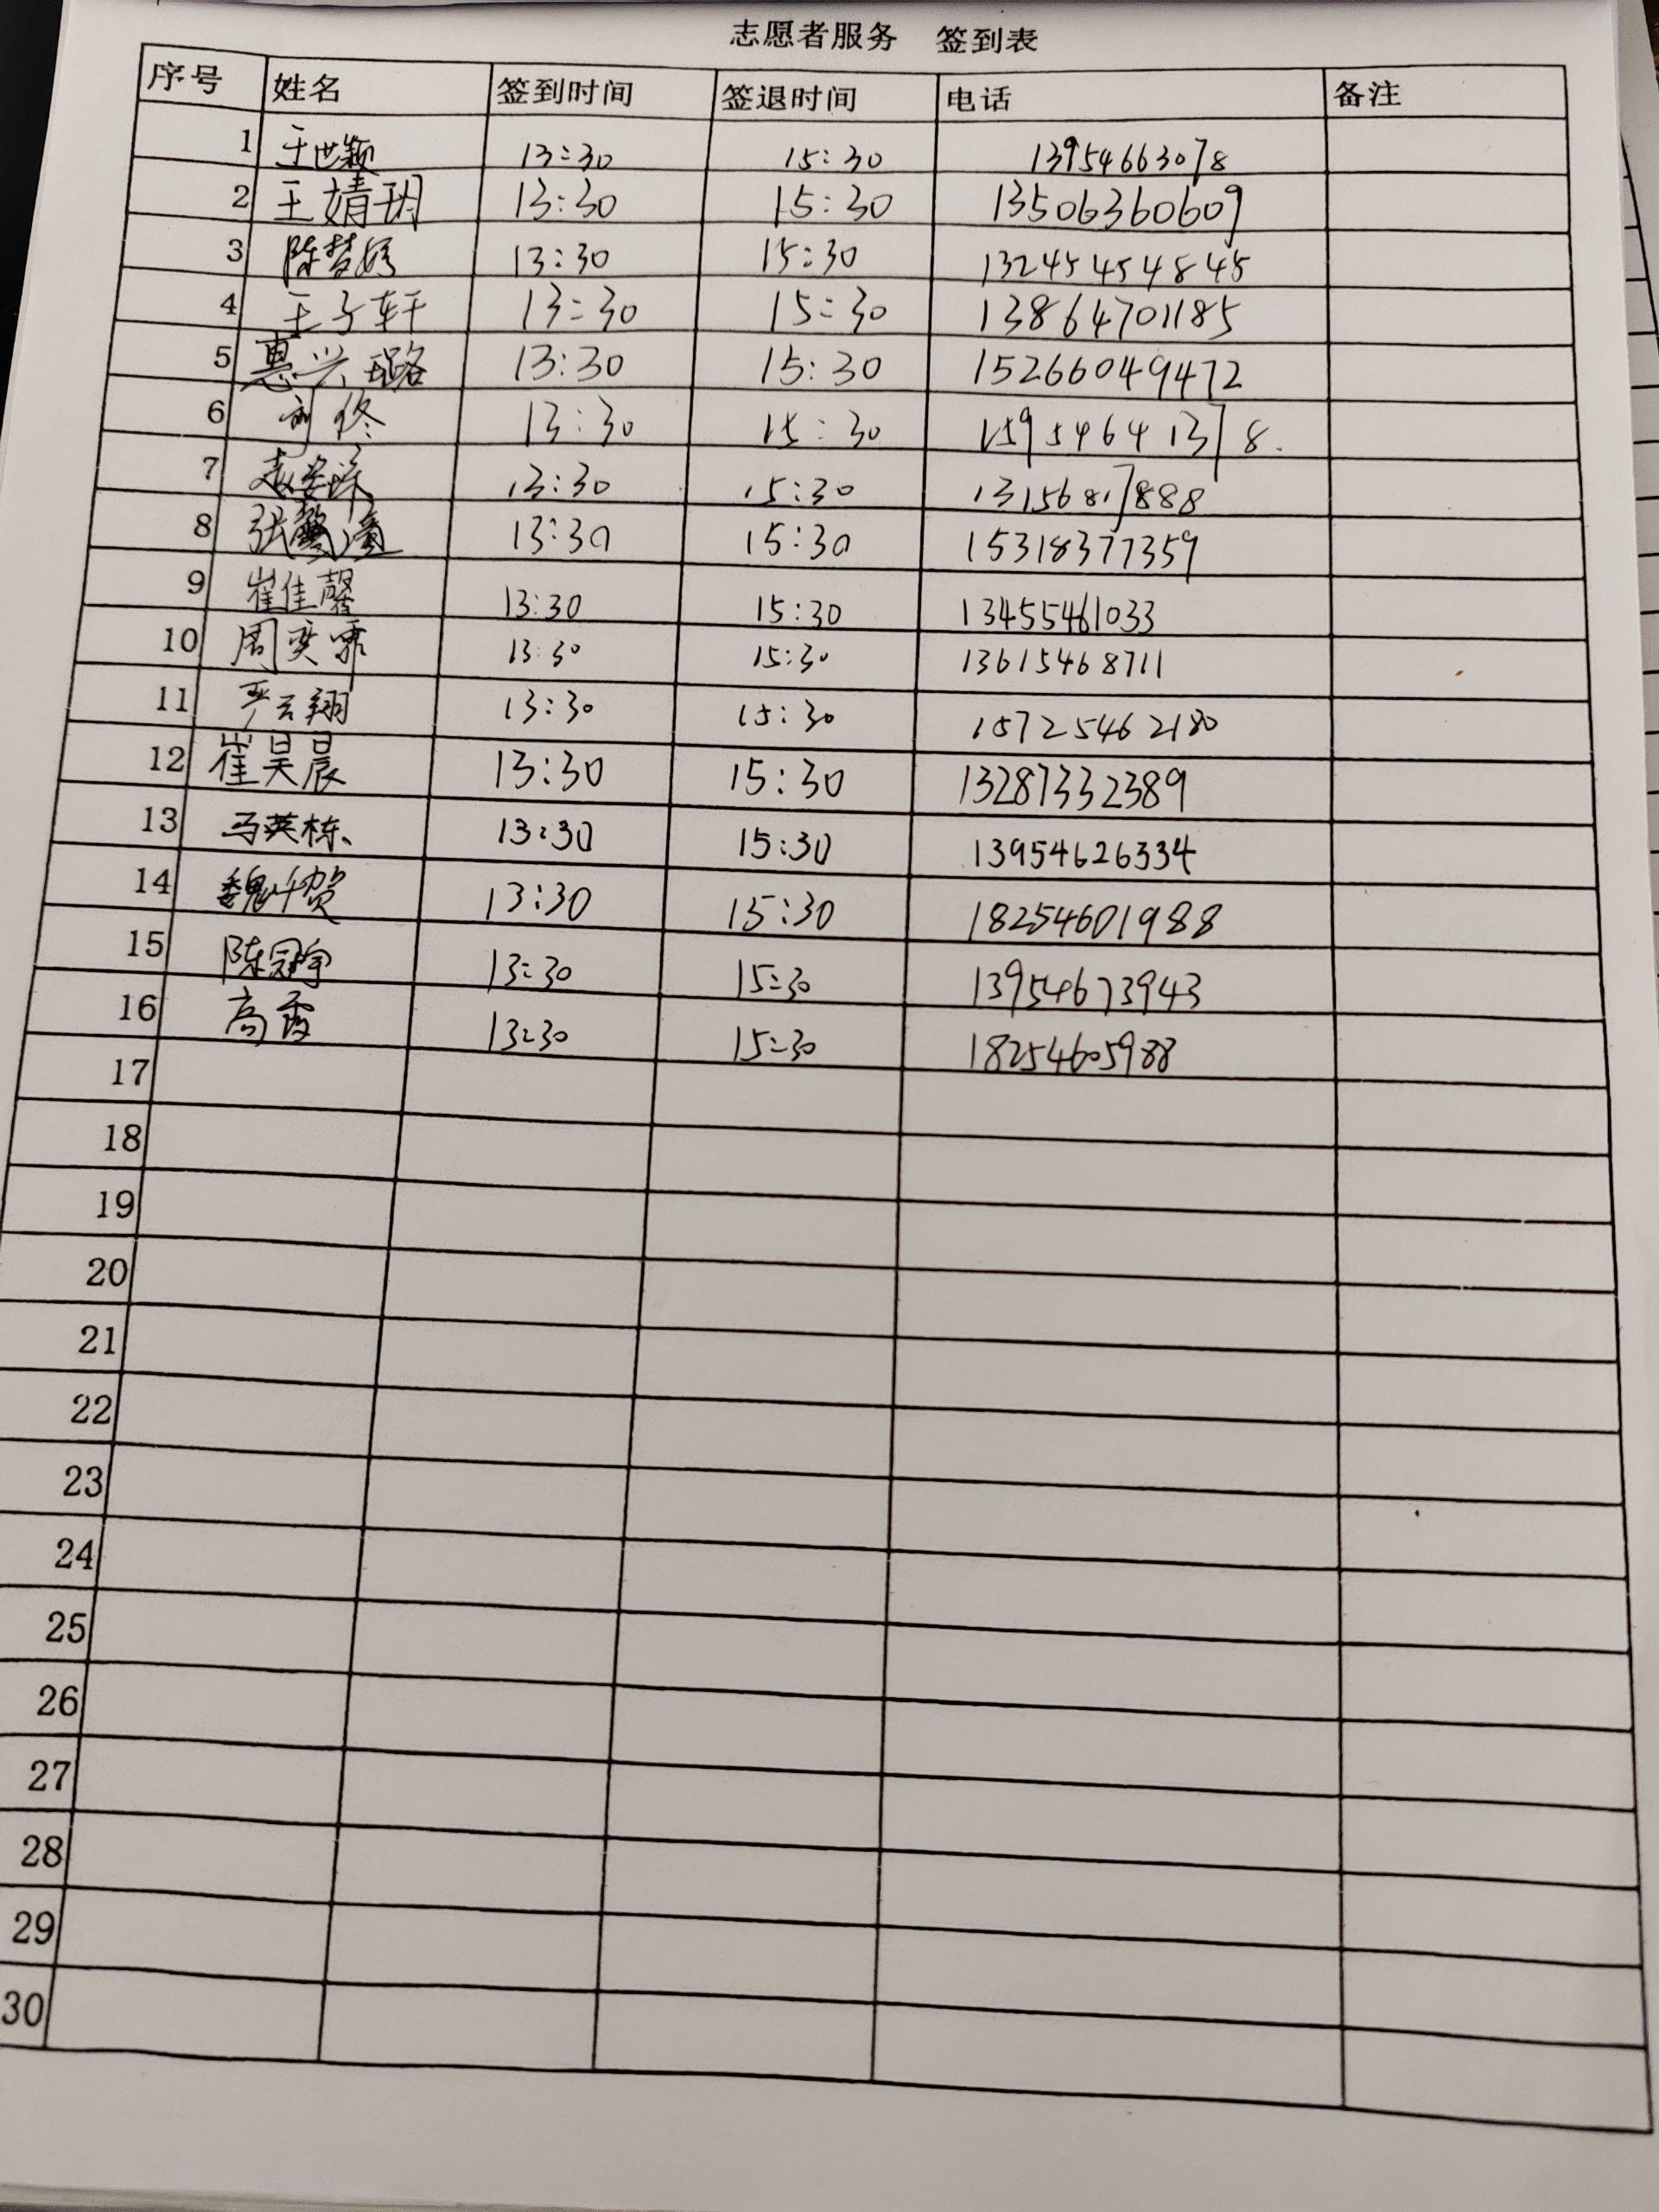 志愿者服务 签到表
序号 姓名 签到时间 签退时间 电话 备注
1 于世颖 13:30 15:30 13954663078
2 王婧玥 13:30 15:30 13506360609
3 陈梦婷 13:30 15:30 13245454845
4 王子轩 13:30 15:30 13864701185
5 惠兴璐 13:30 15:30 15266049472
6 13:30 15:30 15954641378
7 13:30 15:30 13156817888
8 张 13:30 15:30 15318377359
9 崔佳馨 13:30 15:30 13455461033
10 周奕霏 13:30 15:30 13615468711
11 严云翔 13:30 15:30 15725462180
12 崔昊晨 13:30 15:30 13287332389
13 马英栋 13:30 15:30 13954626334
14 魏千贺 13:30 15:30 18254601988
15 陈冠宇 13:30 15:30 13954673943
16 高霞 13:30 15:30 18254605988
17
18
19
20
21
22
23
24
25
26
27
28
29
30